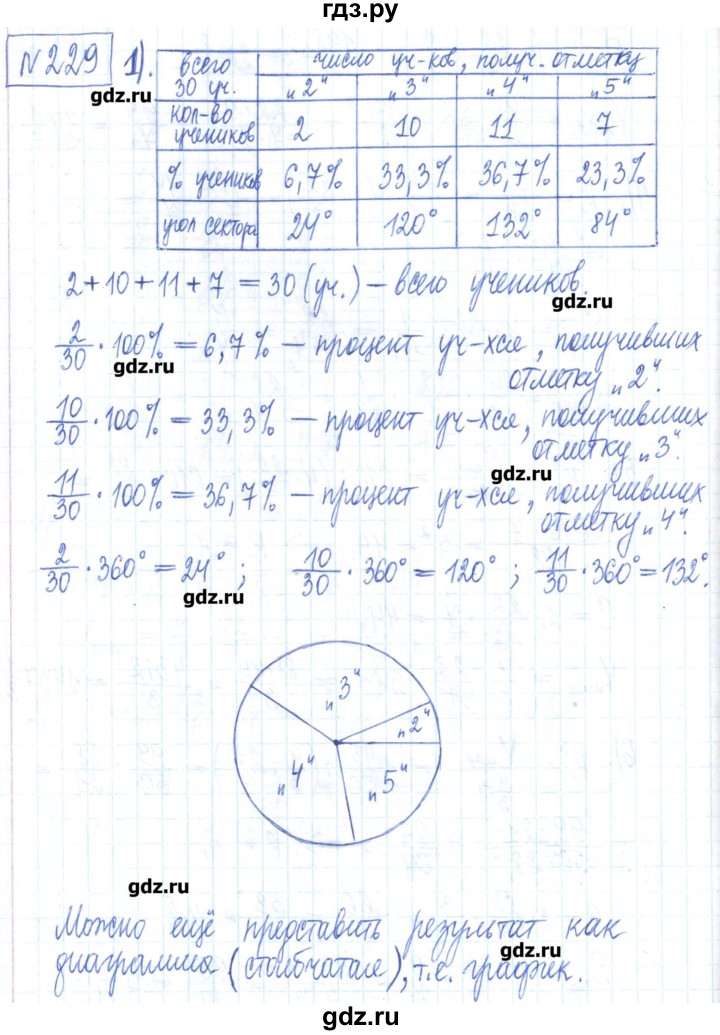 гдз.ру
№229 1). всего 30 уч. число уч-ков, получ. отметку
„2“ „3“ „4“ „5“
gdz.ru
кол-во учеников 2 10 11 7
% учеников 6,7% 33,3% 36,7% 23,3%
угол сектора 24° 120° 132° 84°
2+10+11+7 = 30 (уч.) – всего учеников.
gdz.ru
2/30 · 100% = 6,7% – процент уч-хся, получивших
gdz.ru
отметку „2“.
10/30 · 100% = 33,3% – процент уч-хся, получивших
отметку „3“.
gdz.ru
11/30 · 100% = 36,7% – процент уч-хся, получивших
отметку „4“.
2/30 · 360° = 24° ; 10/30 · 360° = 120° ; 11/30 · 360° = 132°.
gdz.ru
„3“
„2“
„4“
„5“
gdz.ru
Можно ещё представить результат как
gdz.ru
диаграмма (столбчатая), т.е. график.
gdz.ru